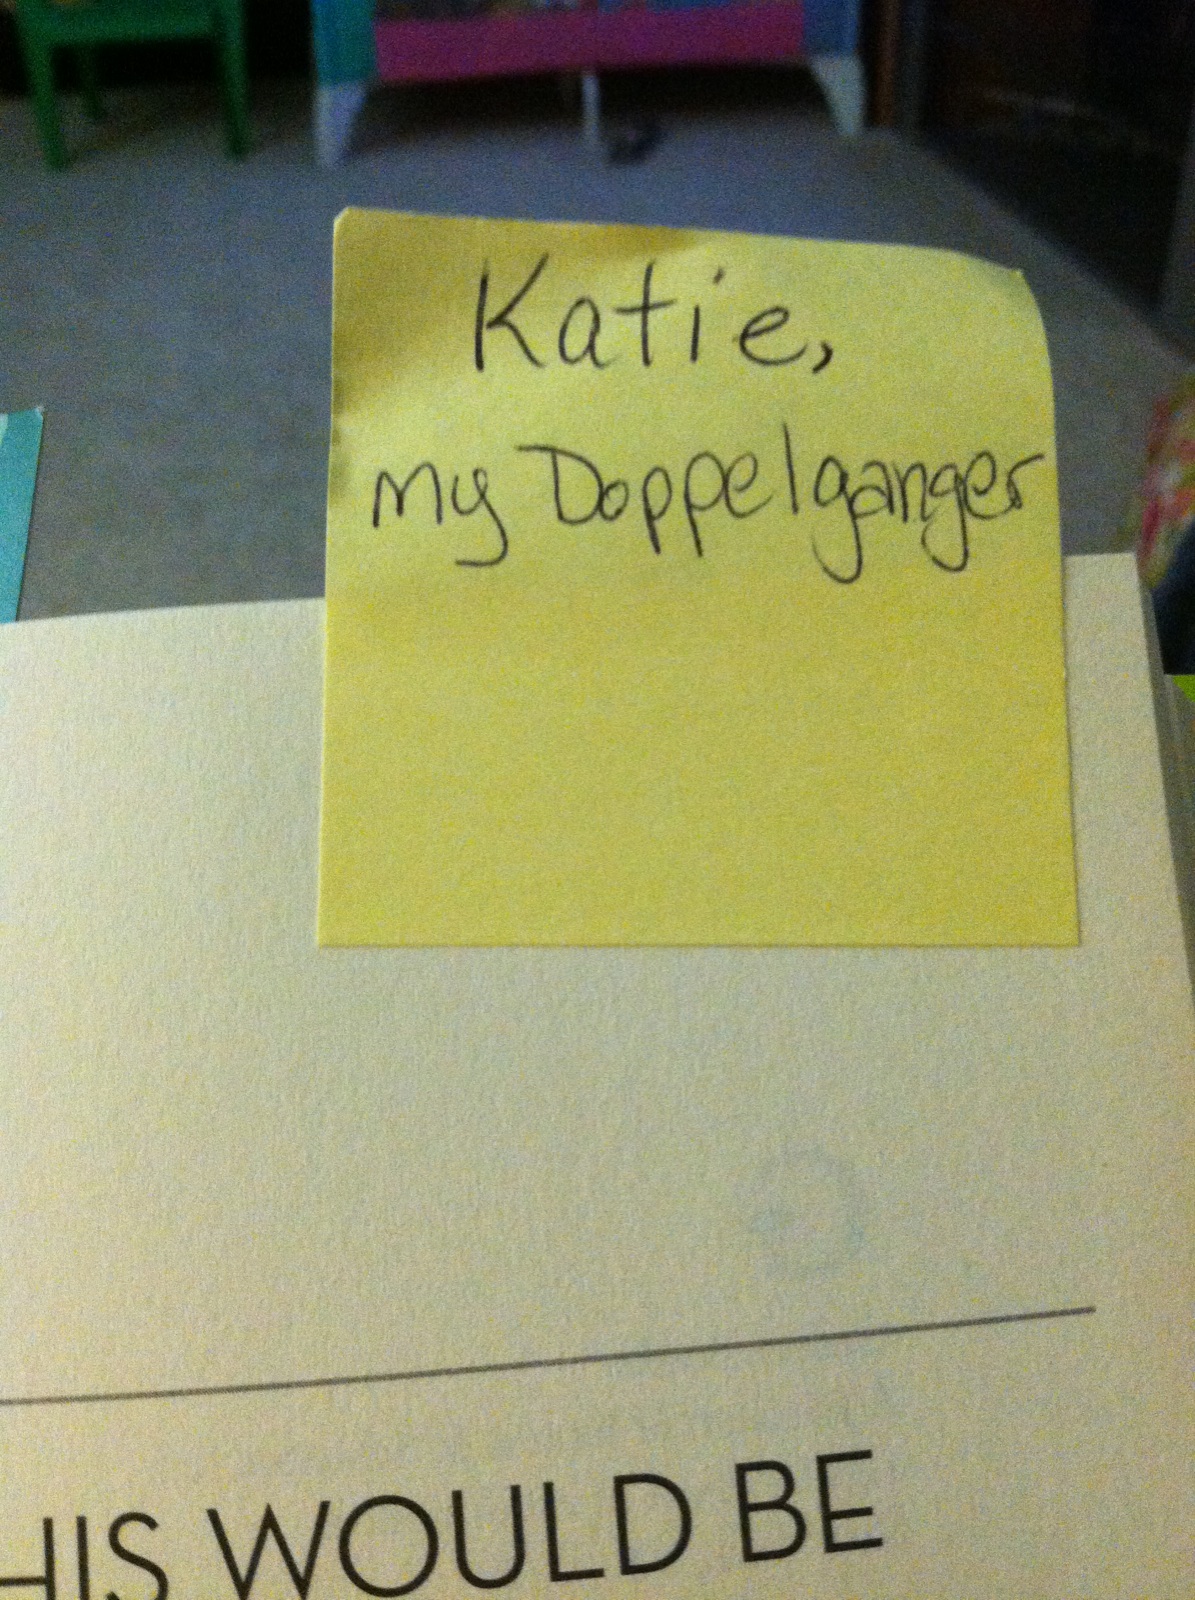 Katie,
my Doppelganger
HIS WOULD BE